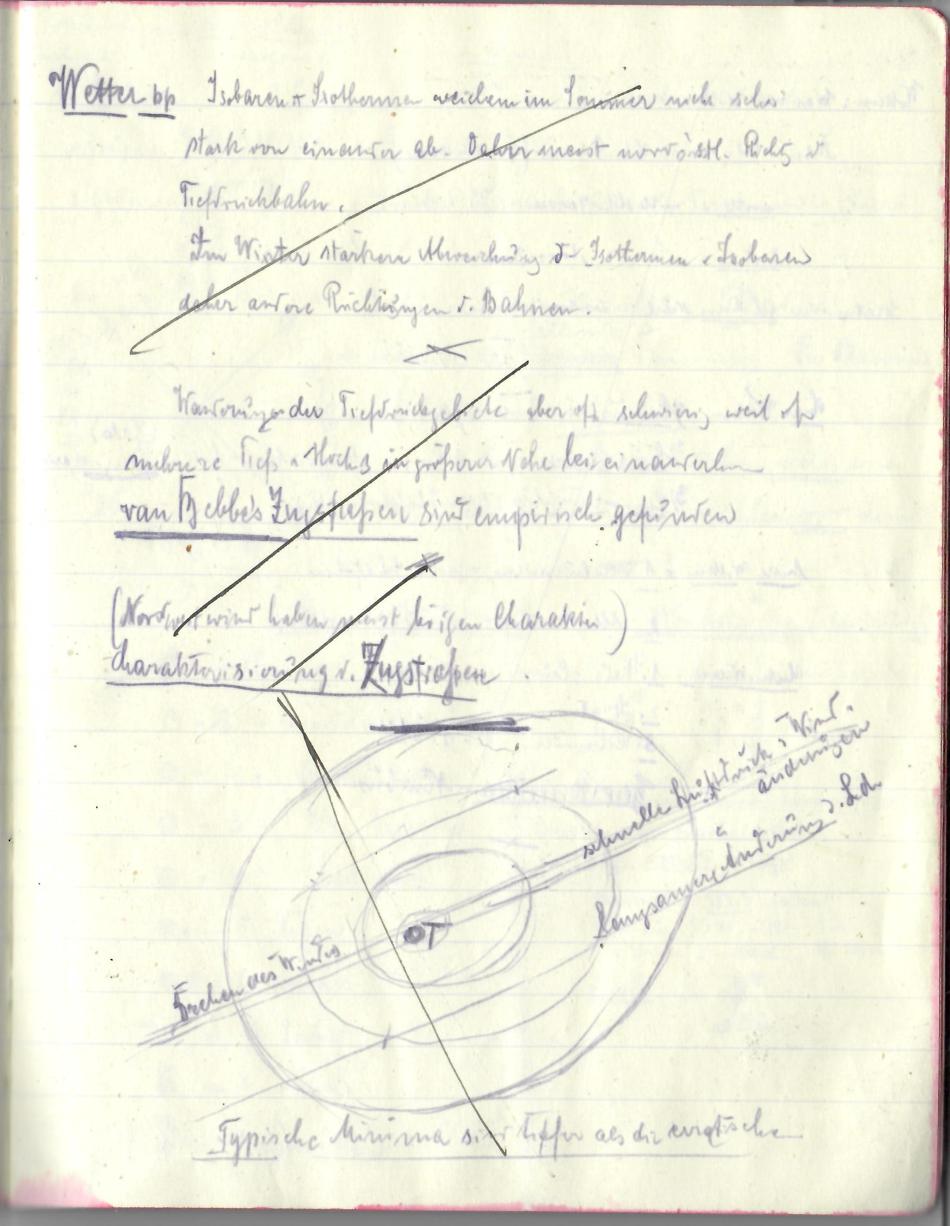 Wetter bp Isobaren + Isothermen weichen im Sommer nicht sehr
stark von einander ab. Daher meist nordöstl. Richtg d
Tiefdruckbahn.
Im Winter stärkere Abweichung d. Isothermen v Isobaren
daher andere Richtungen d. Bahnen.
Wanderungen der Tiefdruckgebiete aber oft schwierig weil oft
mehrere Tiefs u Hochs in größerer Nähe bei einander
van Bebbe's Zugstraßen sind empirisch gefunden
(Nordwestwind haben meist böigen Charakter)
Charakterisierung d. Zugstraßen
schnelle Luftdruck u Wind-
änderungen
langsamere Änderung d. Ld.
T
Drehen des Windes
Typische Minima sind tiefer als die erratischen